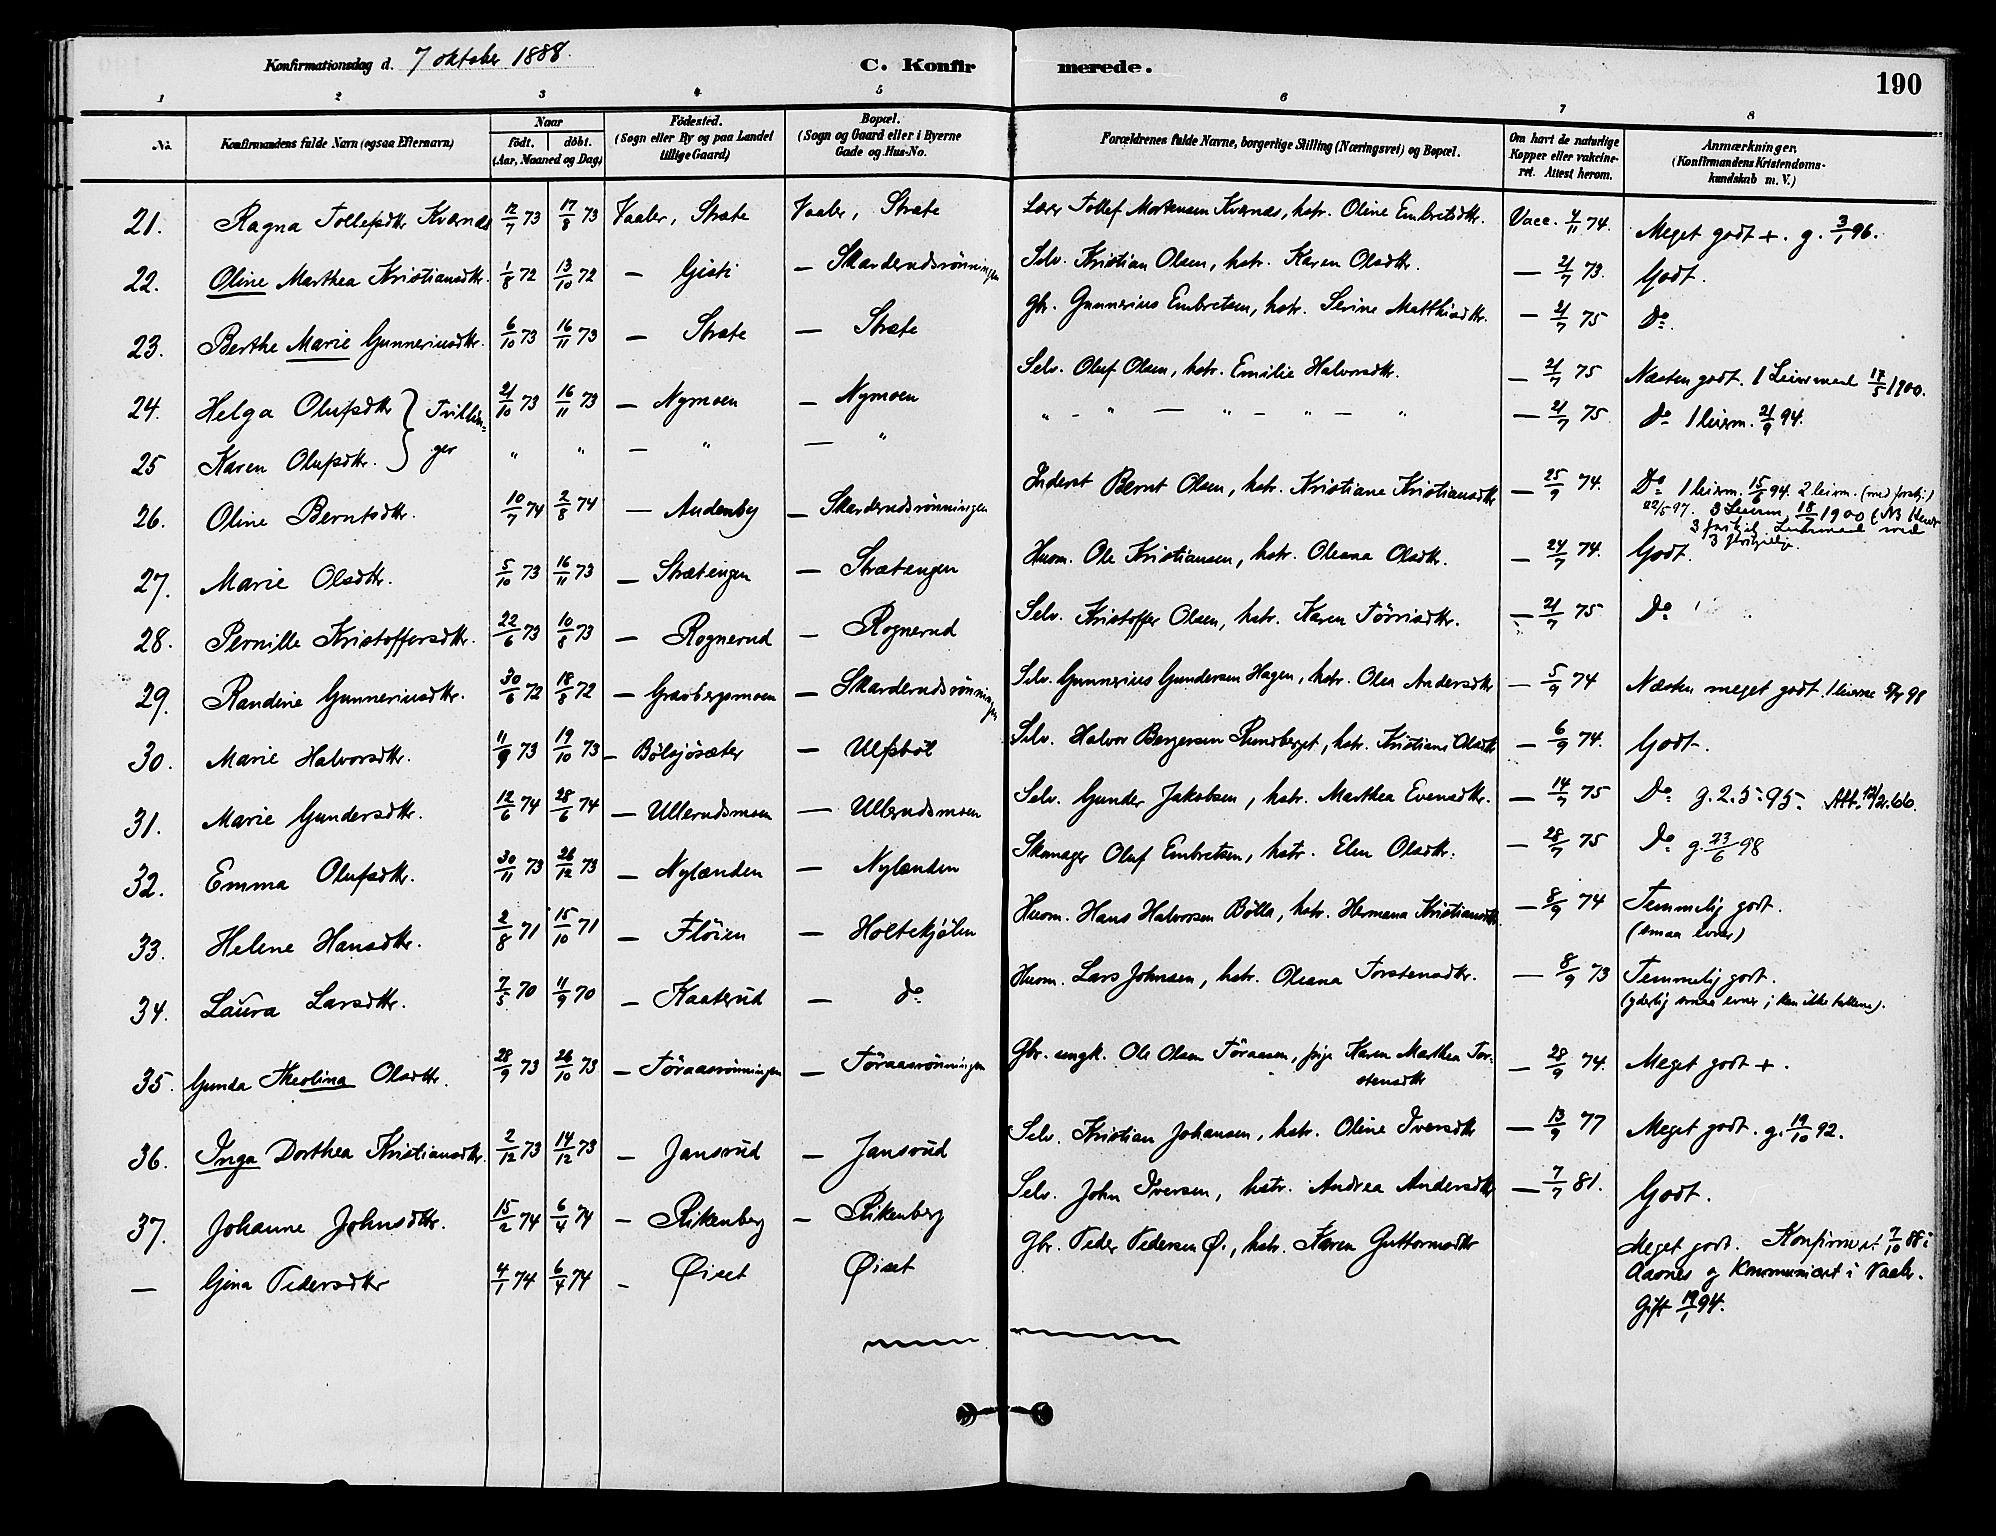 Konfirmationsdag d. 7 oktober 1888. C. Konfirmerede. 190
1 2 3 4 5 6 7 8
No. Konfirmandens fulde Navn (ogsaa Efternavn) Naar födt. döbt. (Aar, Maaned og Dag) Födested. (Sogn eller By og paa Landet tillige Gaard) Bopæl. (Sogn og Gaard eller i Byerne Gade og Hus-No. Forældrenes fulde Navne, borgerlige Stilling (Næringsvei) og Bopæl. Om havt de naturlige Kopper eller vakcineret. Attest herom. Anmærkninger. (Konfirmandens Kristendomskundskab m. V.)
21. Ragna Tollefsdtr Kværnæs 12/7 73 17/8 73 Vaaler, Stræte Vaaler, Stræte Lærer Tollef Mortensen Kværnæs, hstr. Oline Embretsdtr. Vacc. 4/11 74. Meget godt +. g. 3/1 96.
22. Oline Marthea Kristiansdtr. 1/8 72 13/10 72 — Gisti — Skarderudsrønningen Selv. Kristian Olsen, hstr. Karen Olsdtr. — 21/7 73. Godt.
23. Berthe Marie Gunneriusdtr. 6/10 73 16/11 73 — Stræte — Stræte Gbr. Gunnerius Embretsen, hstr. Serine Matthisdtr. — 21/7 75 Do.
24. Helga Olufsdtr } Tvillin= 21/10 73 16/11 73 — Nymoen — Nymoen Selv. Oluf Olsen, hstr. Emilie Halvorsdtr. — 21/7 75 Næsten godt. 1 Leiermaal 17/5 1900.
25 Karen Olufsdtr. } ger " " — " — " " - " — " - " — " — 21/7 75. Do 1 leierm. 21/9 94.
26. Oline Berntsdtr. 10/7 74 2/8 74 — Audenby — Skarderudsrønningen Inderst Bernt Olsen, hstr. Kristiane Kristiansdtr — 25/9 74. Do 1 leierm. 15/6 94. 2 leierm. (med forskj.)
22/5 97. 3 Leierm. 18/1 1900
27. Marie Olsdtr. 5/10 73 16/11 73 — Strætengen — Strætengen Husm. Ole Kristiansen, hstr. Oleana Olsdtr. — 24/7 74. Godt.
28. Pernille Kristoffersdtr. 22/6 73 10/8 73 — Rognerud — Rognerud Selv. Kristoffer Olsen, hstr. Karen Tørrisdtr. — 21/7 75 Do
29. Randine Gunneriusdtr. 30/6 72 18/8 72 — Gravbergsmoen — Skarderudsrønningen Selv. Gunnerius Gundersen Hagen, hstr. Olea Andersdtr — 5/9 74 Næsten meget godt.
30. Marie Halvorsdtr. 11/9 73 19/10 73 — Bølsjøsæter — Ulfsbøl Selv. Halvor Bergersen Rundberget, hstr. Kristiane Olsdtr — 6/9 74. Godt.
31. Marie Gundersdtr. 12/6 74 28/6 74 — Ullerudsmoen — Ullerudsmoen Selv. Gunder Jakobsen, hstr. Marthea Evensdtr. — 14/7 75 Do g. 2.5.95. Att. 12/2.66.
32. Emma Olufsdtr. 30/11 73 26/12 73 — Nylænden — Nylænden Skomager Oluf Embretsen, hstr. Elen Olsdtr. — 28/7 75 Do g. 23/6 98
33. Helene Hansdtr. 2/8 71 15/10 71 — Fløien — Holtekjølen Husm. Hans Halvorsen Bølla, hstr. Hermana Kristiansdtr. — 8/9 74 Temmelig godt.
(smaa evner)
34. Laura Larsdtr. 7/5 70 11/9 70 — Kaaterud — do Husm. Lars Johnsen, hstr. Oleana Torstensdtr. — 8/9 73 Temmelig godt.
(yderlig smaa evner; kan ikke tallene).
35. Gunda Theolina Olsdtr. 28/9 73 26/10 73 — Føraasrønningen — Føraasrønningen Gbr. ungk. Ole Olsen Føraasen, pige Karen Marthea Tor-
stensdtr — 28/9 74. Meget godt +.
36. Inga Dorthea Kristiansdtr. 2/12 73 14/12 73 — Jansrud — Jansrud Selv. Kristian Johansen, hstr. Oline Iversdtr — 13/9 77 Meget godt. g. 19/10 92.
37. Johanne Johnsdtr. 15/2 74 6/4 74 — Rikenberg — Rikenberg Selv. John Iversen, hstr. Andrea Andersdtr — 7/7 81. Godt.
— Gina Pedersdtr 4/1 74 6/4 74 — Øiset Øiset Gbr. Peder Pedersen Ø., hstr. Karen Guttormsdtr Meget godt. Konfirmert 7/10 88 i
Aasnes og kommunicert i Vaaler.
Gift 19/1 94.